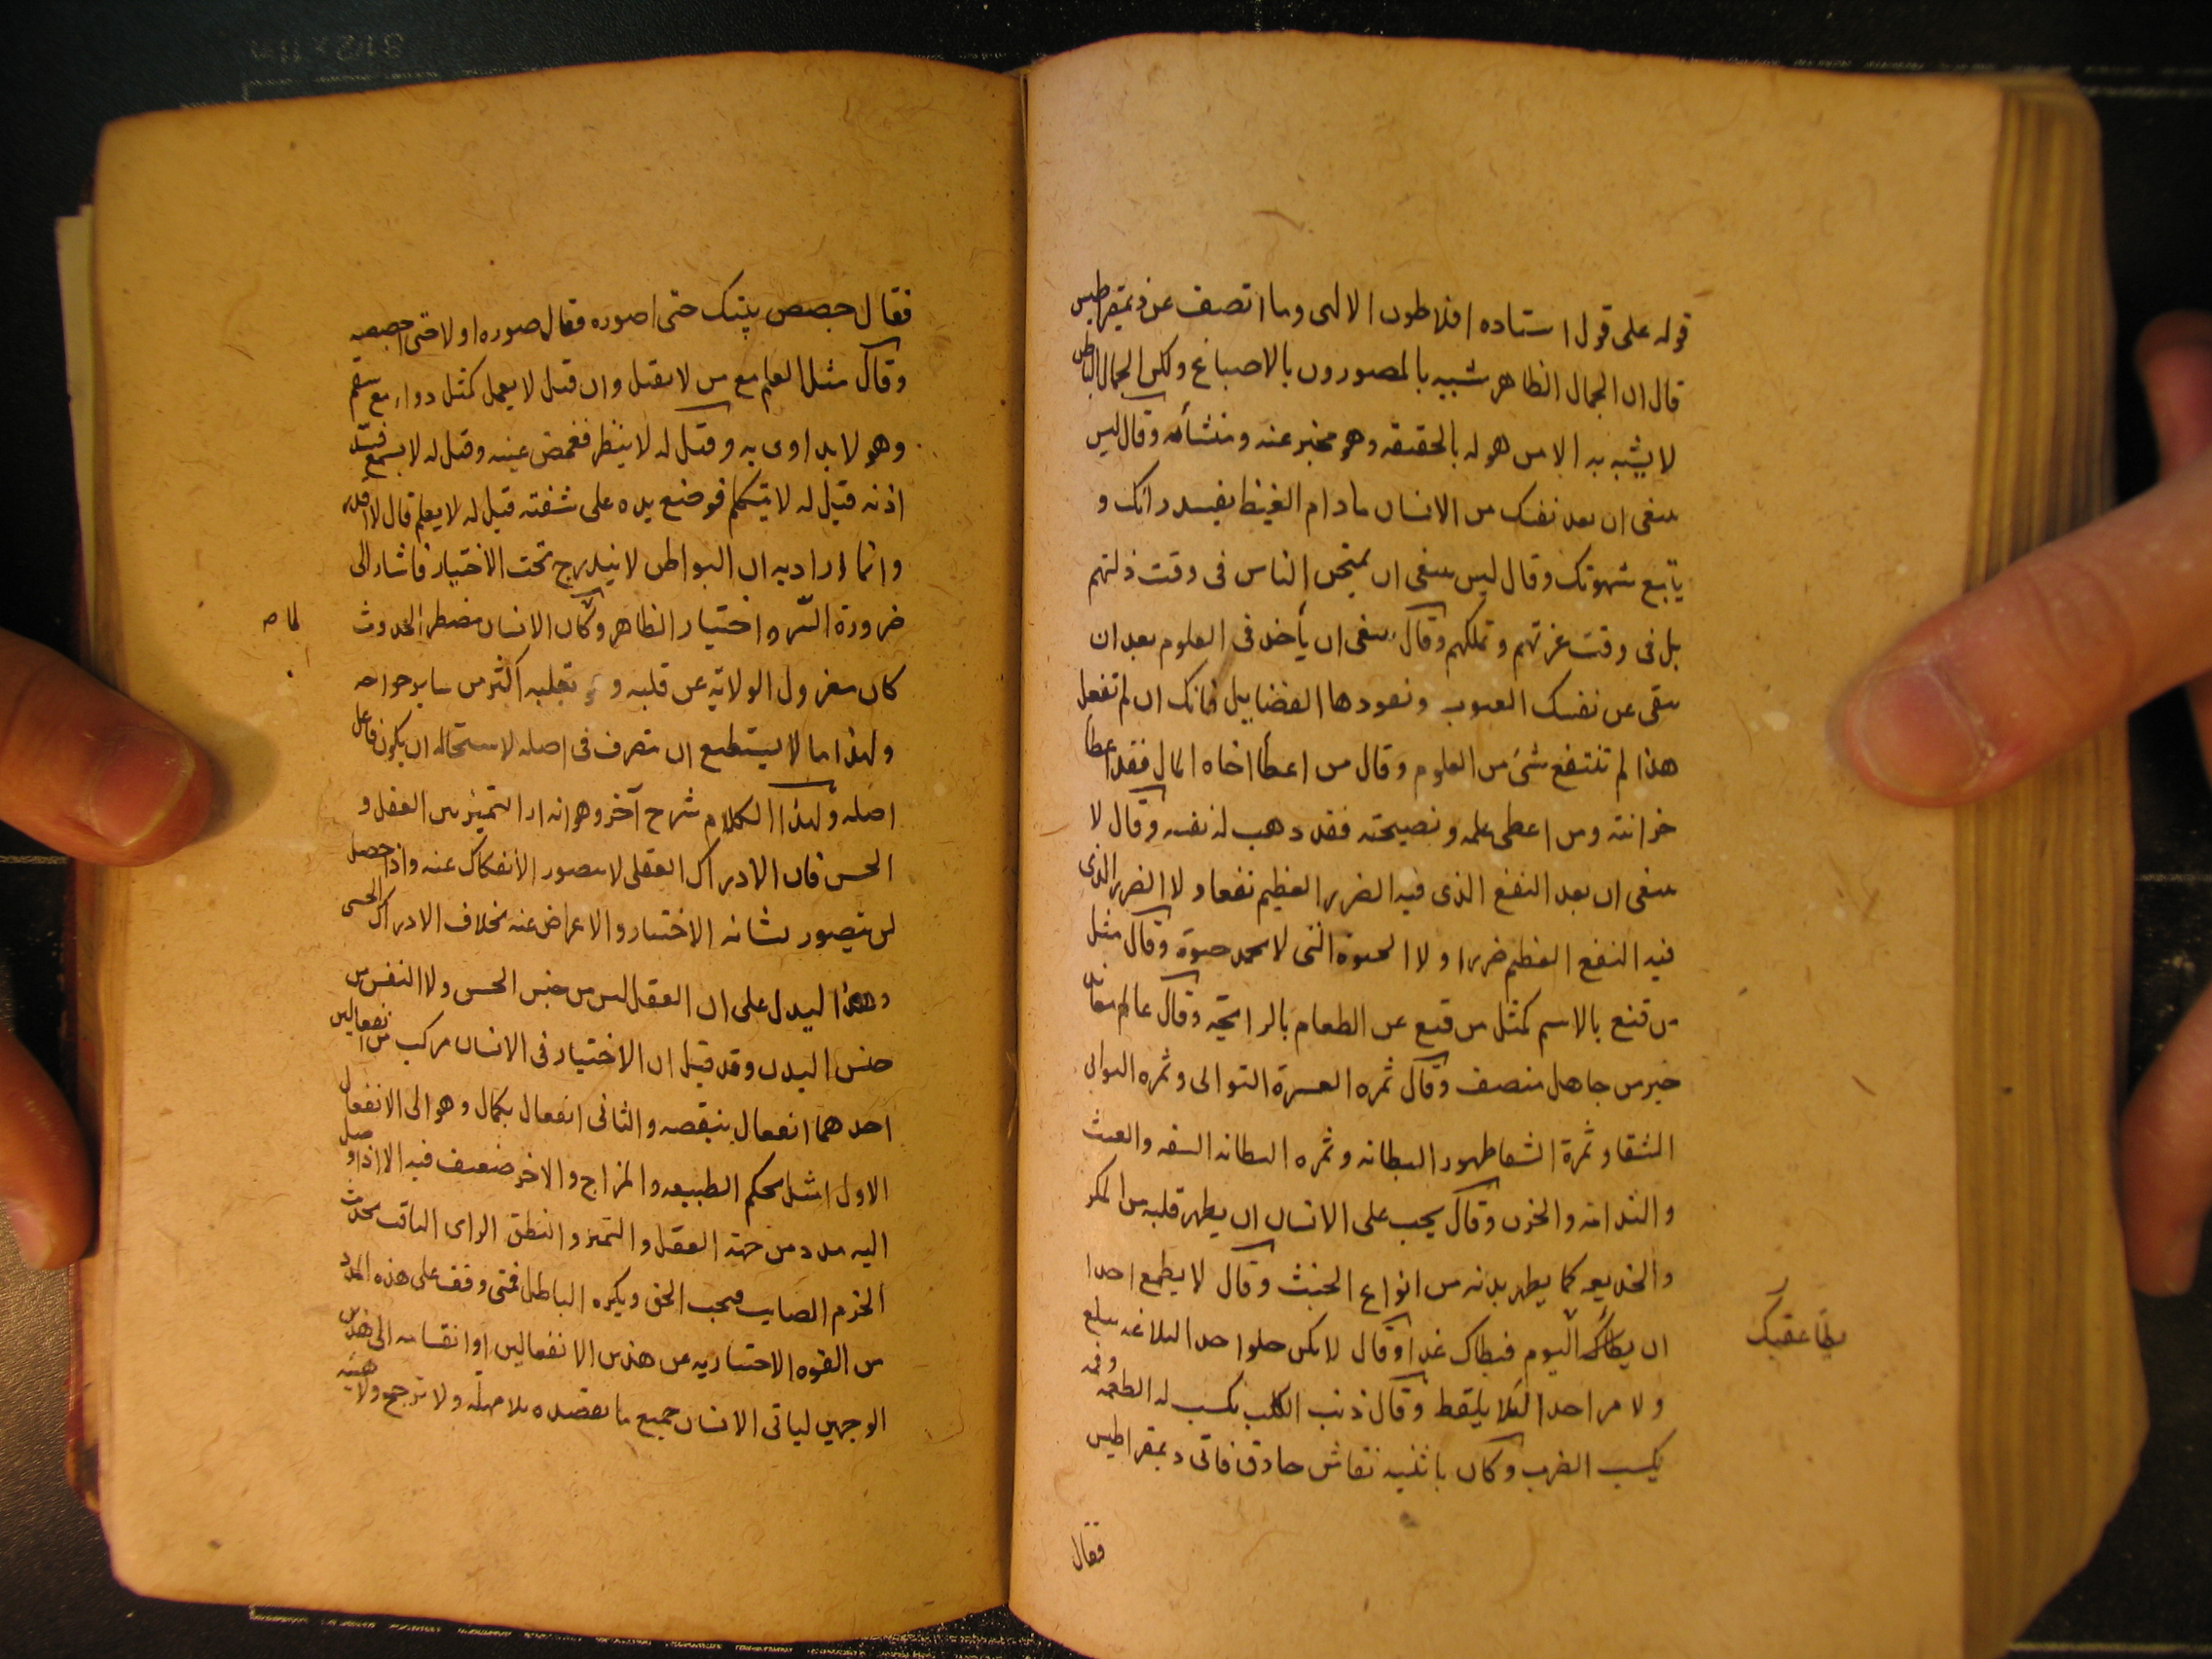 قوله على قول استاده افلاطون الالهى وما اتصف عن ذيمقراطيس
قال ان الجمال الظاهر شبيه بالمصورون بالاصباغ ولكن الجمال الباطن
لا يشبه به الا من هو له بالحقيقه وهو مخبر عنه ومنشأه وقال ليس
ينبغى ان تعد نفسك من الانسان مادام الغيظ يفسد رائك و
يتابع شهوتك وقال ليس ينبغى ان يمتحن الناس فى وقت ذلتهم
بل فى وقت عزتهم وتملكهم وقال ينبغى ان يأخذ فى العلوم بعد ان
تنقى عن نفسك العيوب وتعودها الفضايل فانك ان لم تفعل
هذا لم تنتفع بشئ من العلوم وقال من اعطأ اخاه المال فقد اعطأ
خزانته ومن اعطى علمه ونصيحته فقد وهب له نفسه وقال لا
ينبغى ان يعد النفع الذى فيه الضرر العظيم نفعا ولا الضرر الذى
فيه النفع العظيم ضررا ولا الحيوة التى لا تحمد حيوة وقال مثل
من قنع بالاسم كمثل من قنع عن الطعام بالرايحة وقال عالم معاند
خير من جاهل منصف وقال ثمره العسرة التوانى وثمره التوانى
الشقا وثمرة الشقا ظهور البطاله وثمره البطاله السفه والعبث
والندامه والحزن وقال يجب على الانسان ان يطهر قلبه من المكر
والخديعه كما يطهر بدنه من انواع الخبث وقال لا يطمع احدا
ان يطاك اليوم فيطاك غدا وقال لا تكن حلوا حدا البلاغه تبلع
ولا مرا حدا لئلا يلفظ وقال ذنب الكلب يكسب له الطعمه وفمه
يكسب الضرب وكان باثينيه نقاش حادق فاتى ديمقراطيس
يطا عقبك
فقال
فقال جصص بيتك حتى اصوره فقال صوره اولا حتى اجصصه
وقال مثل العلم مع من لا يقبل وان قبل لا يعمل كمثل دواء مع سقيم
وهو لا يداوى به وقيل له لا ينظر فغمض عينه وقيل له لا يسمع فسد
اذنه قيل له لا يتكلم فوضع يده على شفته قيل له لا يعلم قال لا اقدر
وانما اراد به ان البواطن لا يندرج تحت الاختيار فاشار الى
ضرورة السر واختيار الظاهر وكان الانسان مضطر الحدوث
كان معزول الولايه عن قلبه و بقلبه اكثر من ساير جوارحه
ولهذا ما لا يستطيع ان يتصرف فى اصله لاستحاله ان يكون فاعل
اصله ولهذا الكلام شرح آخر وهو انه اراد التميز بين العقل و
الحس فان الادراك العقلى لا يتصور الانفكاك عنه واذا حصل
لن يتصور نسيانه الاختيار والاعراض عنه بخلاف الادراك الحسى
وهذا ليدل على ان العقل ليس من جنس الحس ولا النفس من
جنس البدن وقد قيل ان الاختيار فى الانسان مركب من انفعالين
احدهما انفعال بنقصه والثانى انفعال بكمال وهو الى الانفعال
الاول اميل بحكم الطبيعه والمزاج والاخر ضعيف فيه الا اذا وصل
اليه مدد من جهة العقل والتميز والنطق الراى الثاقب يحدث
الحزم الصايب فيحب الحق ويكره الباطل فمتى وقف على هذه المدد
من القوه الاختياريه عن هذين الانفعالين او انقسامه الى هذين
الوجهين لياتى الانسان جميع ما يقصده بلا مهله ولا ترجح ولا هيئه